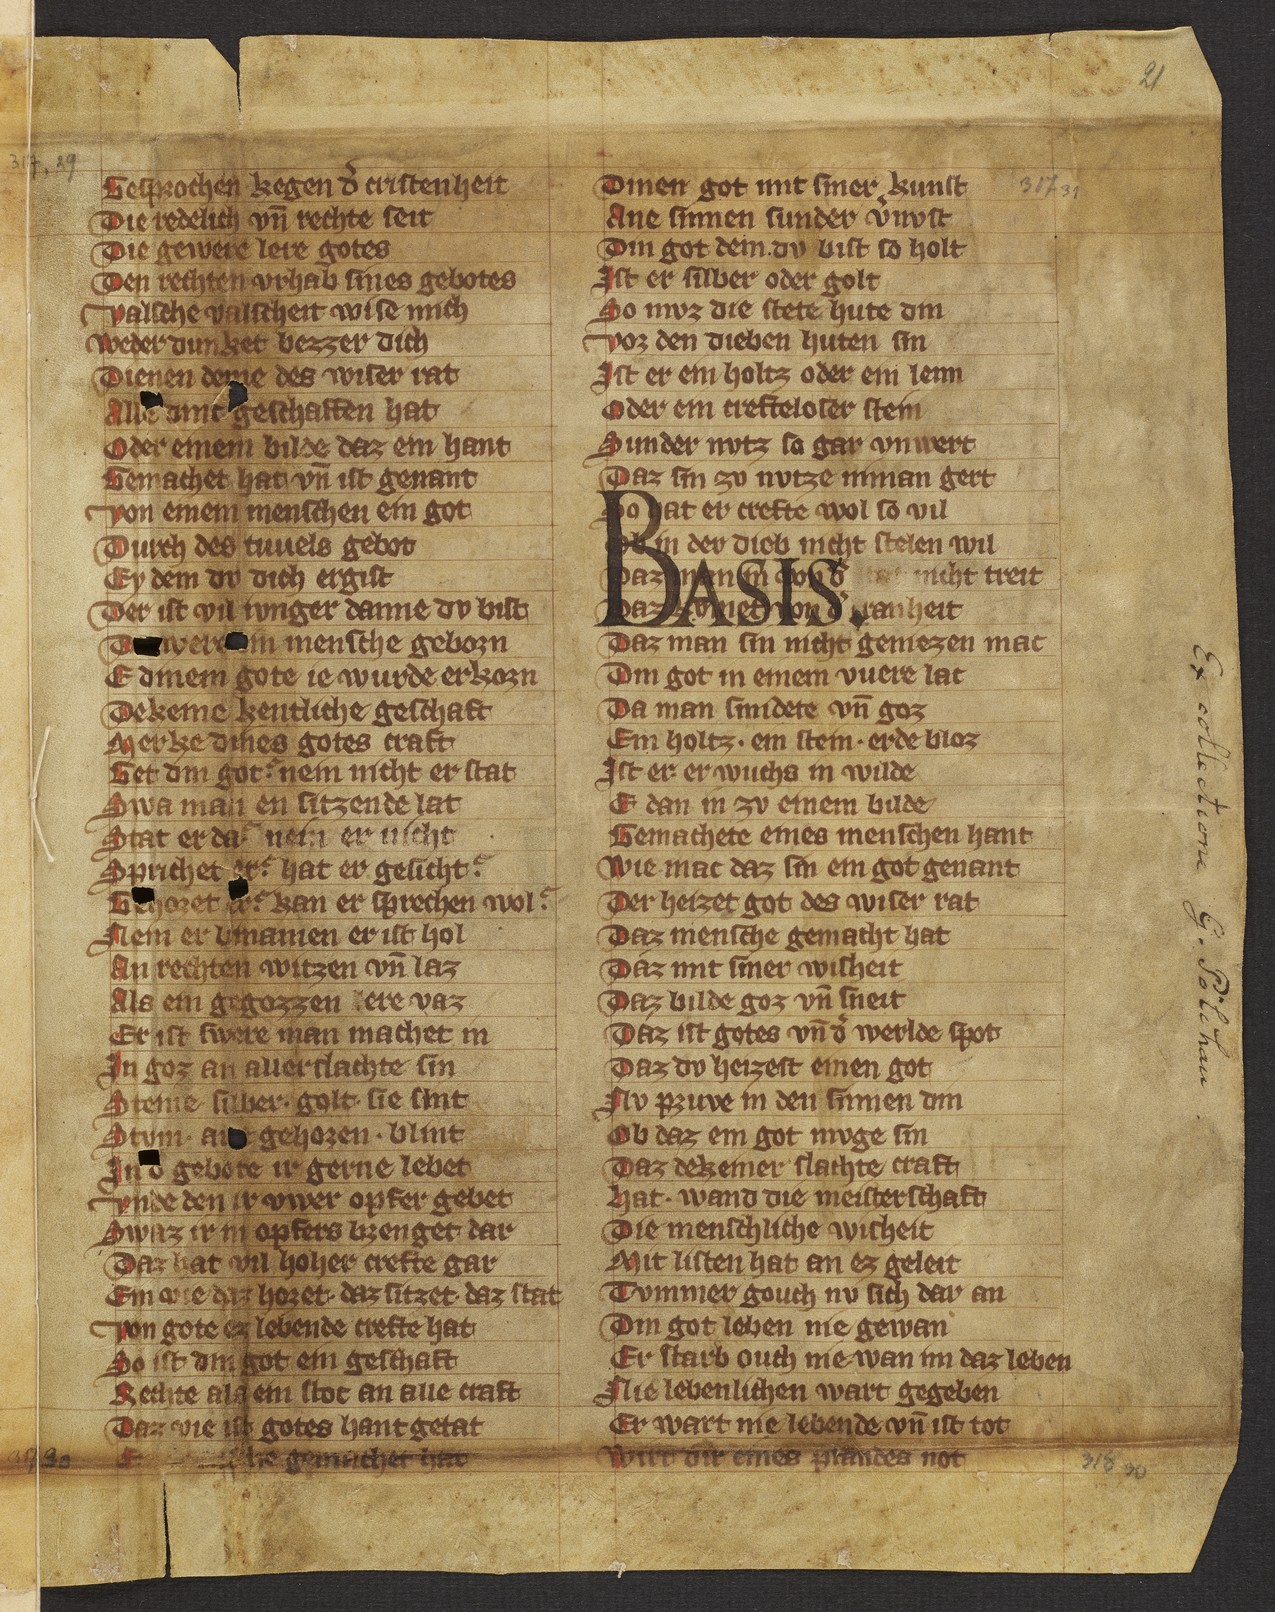 21
317, 29
Gesprochen kegen d̕ cristenheit
Die redelich vn̄ rechte seit
Die gewere lere gotes
Den rechten vrhab sines gebotes
Valsche valscheit wise mich
Weder dunket bezzer dich
Dienen deme des wiser rat
Alle dinc geschaffen hat
Oder einem bilde daz ein hant
Gemachet hat vn̄ ist genant
Von einem menschen ein got
Durch des tuuels gebot
Ey dem dv dich ergist
Der ist vil iunger danne dv bist
were ein mensche geborn
E dinem gote ie wurde erkorn
Dekeine kentliche geschaft
Merke dines gotes craft
Get din got? nein nicht er stat
Swa man en sitzende lat
Stat er da? nein er nicht
Sprichet er? hat er gesicht?
Gehoret er? kan er sprechen wol?
Nein er binamen er ist hol
An rechten witzen vn̄ laz
Als ein gegozzen lere vaz
Er ist swere man machet in
In goz an allerslachte sin
Steine· silber· golt· sie sint
Stvm· an gehoren· blint
In d̕ gebote ir gerne lebet
Vnde den ir vwer opfer gebet
Swaz ir in opfers brenget dar
Daz hat vil hoher crefte gar
Ein vie daz horet· daz sitzet· daz stat
Von gote ez lebende crefte hat
So ist din got ein geschaft
Rechte als ein stoc an alle craft
Daz vie ist gotes hant getat
gemachet hat
30
317 31
Dinen got mit siner kunst
Ane sinnen sunder v̕nvst
Din got dein dv bist so holt
Ist er silber oder golt
So mvz die stete hute din
Vor den dieben huten sin
Ist er ein holtz oder ein leim
Oder ein crefteloser stein
Sunder nvtz so gar vnwert
Daz sin zv nvtze niman gert
So hat er crefte wol so vil
Ob in der dieb nicht stelen wil
Daz man in von d̕ stat nicht treit
Daz kvmet von d̕ cranheit
BASIS.
Daz man sin nicht geniezen mac
Din got in einem vuere lac
Da man smidete vn̄ goz
Ein holtz· ein stein· erde bloz
Ist er er wuchs in wilde
E dan in zv einem bilde
Gemachete eines menschen hant
Wie mac daz sin ein got genant
Der heizet got des wiser rat
Daz mensche gemacht hat
Daz mit siner wisheit
Daz bilde goz vn̄ sneit
Daz ist gotes vn̄ d̕ werlde spot
Daz dv heizest einen got
Nv pruve in den sinnen din
Ob daz ein got mvge sin
Daz dekeiner slachte craft
hat· wand die meisterschaft
Die menschliche witheit
Mit listen hat an ez geleit
Tvmmer gouch nv sich dar an
Din got leben nie gewan
Er starb ouch nie wan im daz leben
Nie lebenlichen wart gegeben
Er wart nie lebende vn̄ ist tot
Wirt dir eines pfandes not
318 30
Ex collectione G. Pölchau.